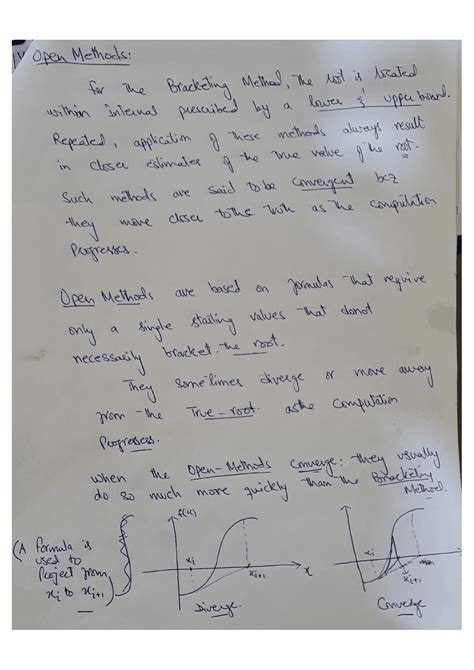 Open Methods:
for the Bracketing Method, the root is located
within internal prescribed by a lower & upper bound.
Repeated, application of these methods always result
in closer estimates of the true value of the root.
Such methods are said to be convergent bcz
they move closer to the truth as the computation
Progresses.
Open Methods are based on formulas that require
only a single starting values that donot
necessarily bracket the root.
They sometimes diverge or move away
from the True-root as the Computation
Progresses.
when the Open-Methods converge: they usually
do so much more quickly than the Bracketing
Method.
(A Formula is
used to
Project from
xi to xi+1)
f(x)
xi
xi+1
x
Diverge
xi
xi+1
Converge